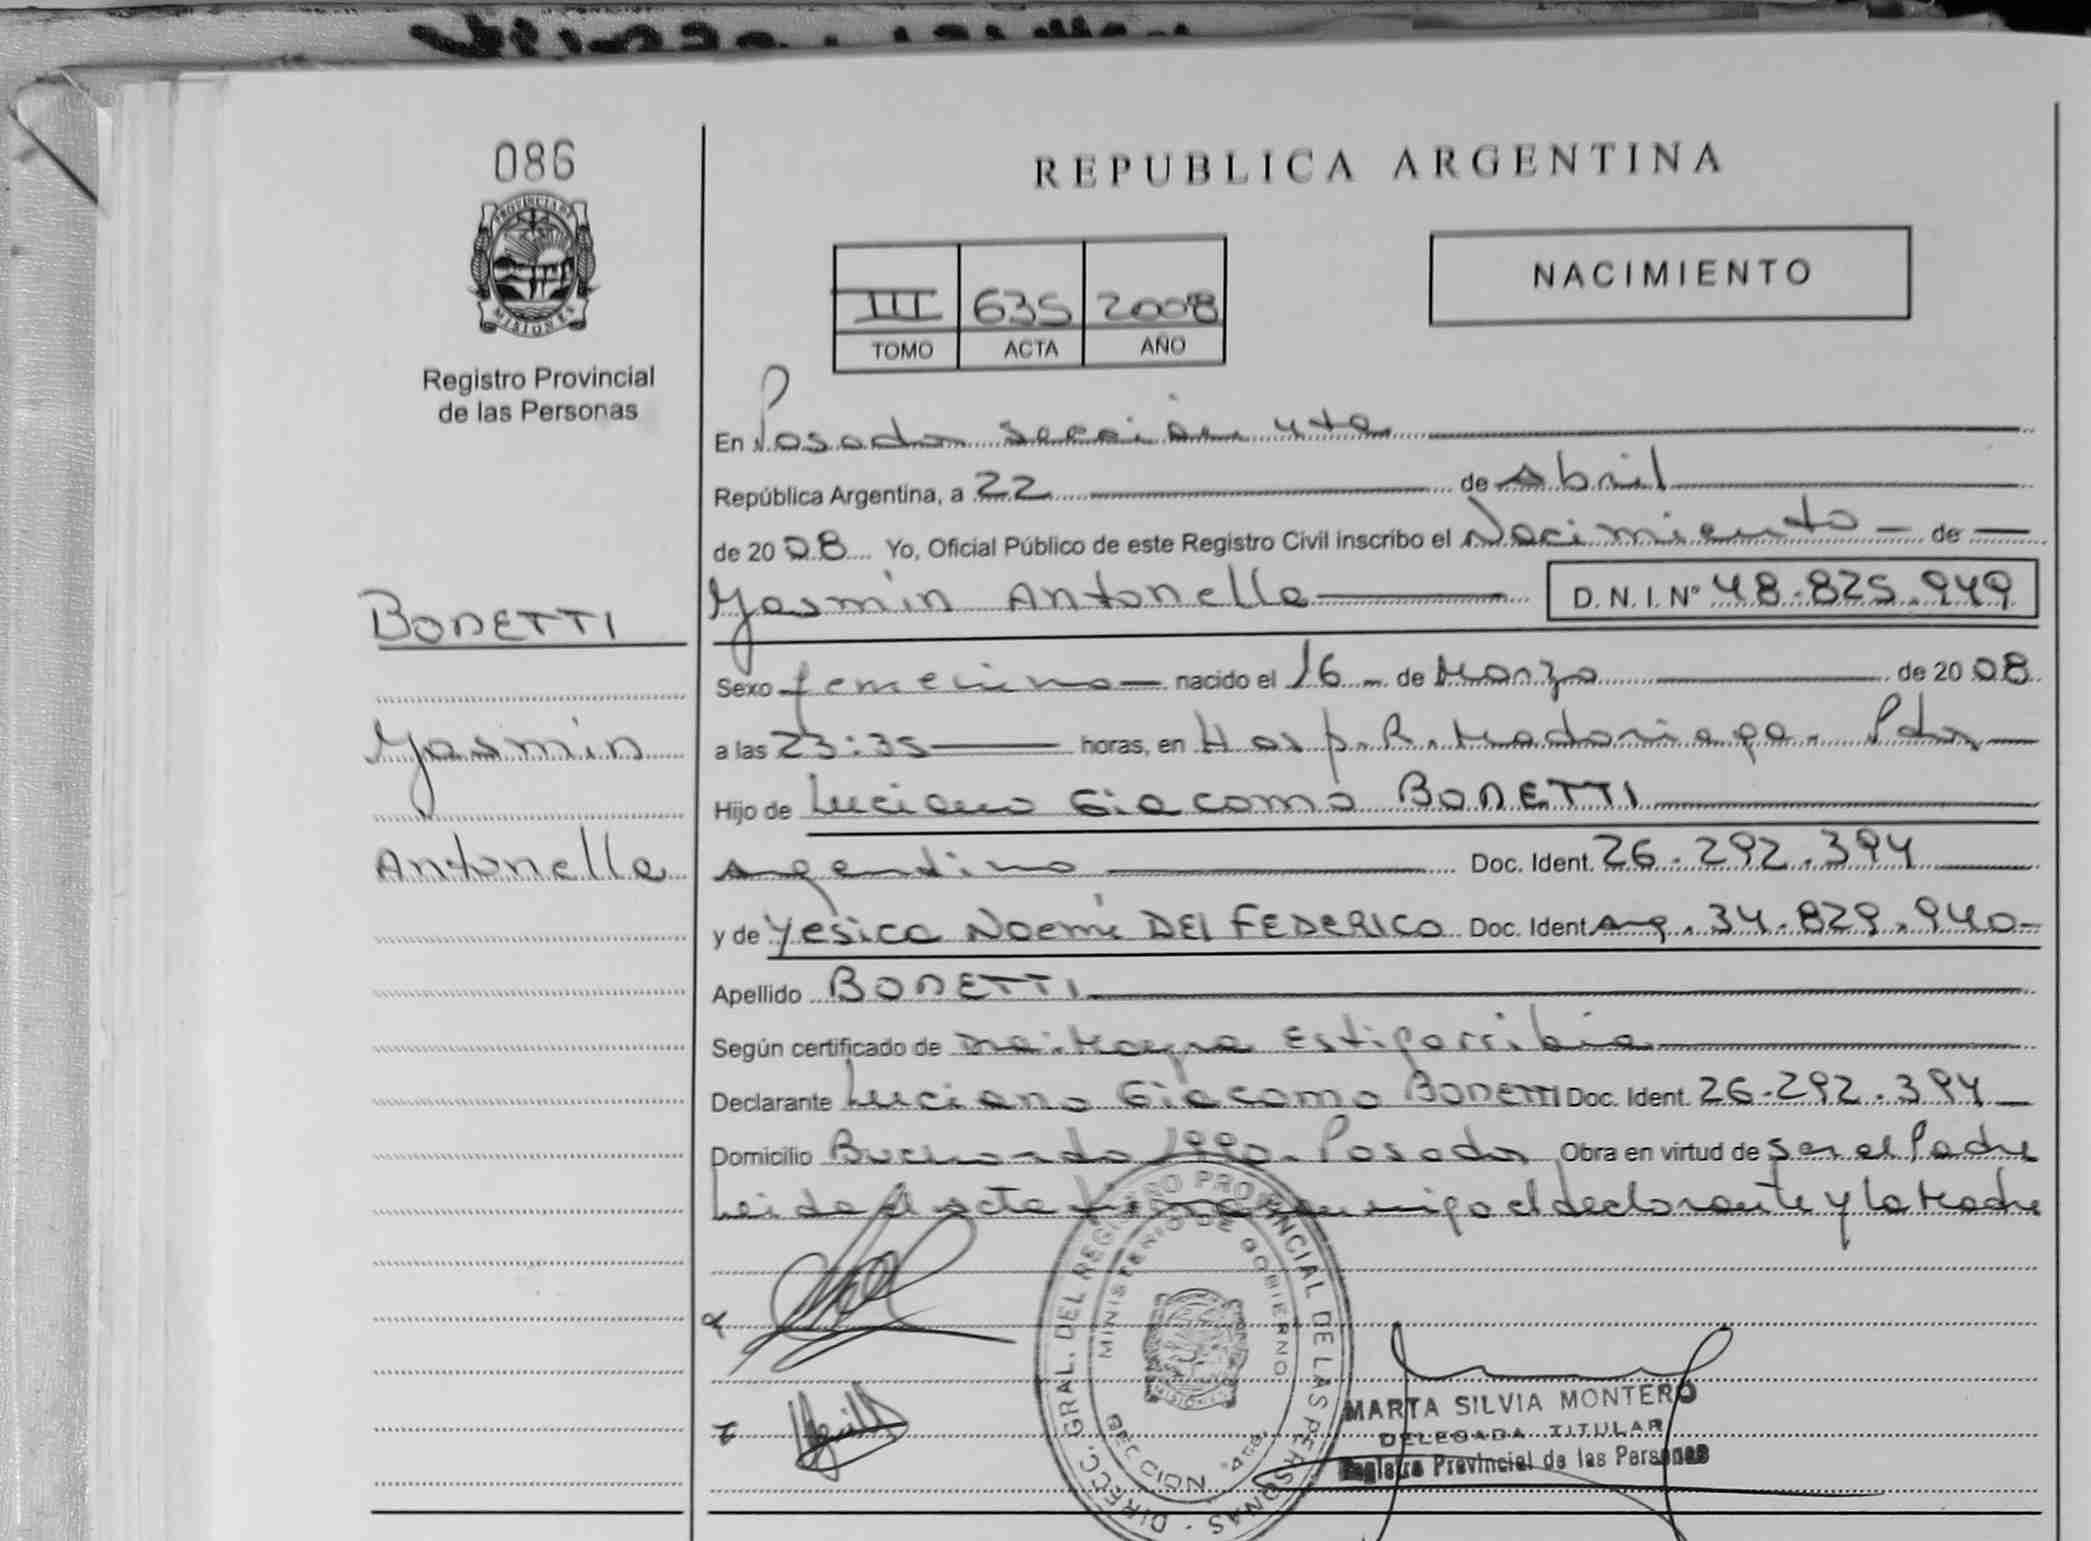 086
PROVINCIA DE
MISIONES
Registro Provincial
de las Personas
REPUBLICA ARGENTINA
III 635 2008
TOMO ACTA AÑO
NACIMIENTO
En Posadas sección 4ta
República Argentina, a 22 de Abril
de 2008 Yo, Oficial Público de este Registro Civil inscribo el Nacimiento de
Yasmin Antonella D. N. I. Nº 48.825.949
BONETTI
Yasmin
Antonella
Sexo femenino nacido el 16 de Marzo de 2008
a las 23:35 horas, en Hosp. R. Madariaga. Pdas
Hijo de Luciano Giacomo BONETTI
Argentino Doc. Ident. 26.292.394
y de Yesica Noemi DEI FEDERICO Doc. Ident Arg. 34.829.940
Apellido BONETTI
Según certificado de Mayra Estigarribia
Declarante Luciano Giacomo BONETTI Doc. Ident. 26.292.394
Domicilio 1990. Posadas Obra en virtud de ser el Padre
Leida el acta firma conmigo el declarante y la Madre
DIRECC. GRAL. DEL REGISTRO PROVINCIAL DE LAS PERSONAS
MINISTERIO DE GOBIERNO
SECCION 4ta.
MISIONES
MARTA SILVIA MONTERO
DELEGADA TITULAR
Registro Provincial de las Personas